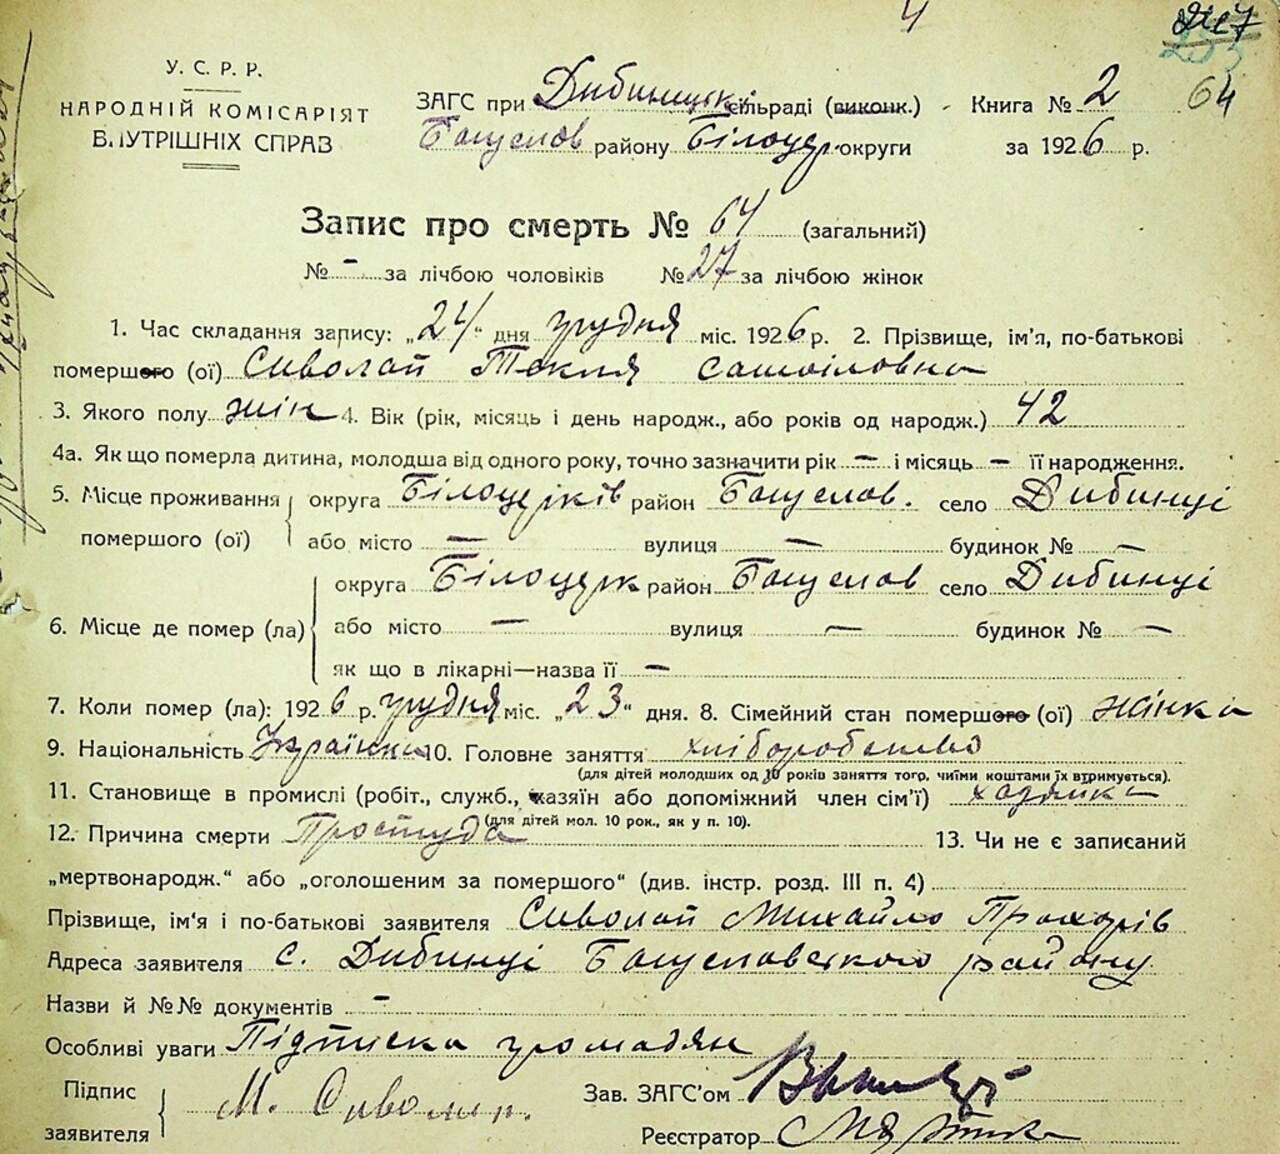 4
У. С. Р. Р.
НАРОДНІЙ КОМІСАРІЯТ
ВНУТРІШНІХ СПРАВ
ЗАГС при Дибинецк. сільраді (виконк.) Книга № 2 64
Богуслов району Білоцер. округи за 1926 р.
Запис про смерть № 64 (загальний)
№ - за лічбою чоловіків № 27 за лічбою жінок
1. Час складання запису: „24“ дня грудня міс. 1926 р. 2. Прізвище, ім'я, по-батькові
помершого (ої) Сиволап Текля Самоіловна
3. Якого полу жін 4. Вік (рік, місяць і день народж., або років од народж.) 42
4а. Як що померла дитина, молодша від одного року, точно зазначити рік — і місяць — її народження.
5. Місце проживання помершого (ої) округа Білоцерків район Богуслов. село Дибинці
або місто — вулиця — будинок № —
6. Місце де помер (ла) округа Білоцерк район Богуслов село Дибинці
або місто — вулиця — будинок № —
як що в лікарні—назва її —
7. Коли помер (ла): 1926 р. грудня міс. „23“ дня. 8. Сімейний стан помершого (ої) жінка
9. Національність Українка 10. Головне заняття хліборобство
(для дітей молодших од 10 років заняття того, чиїми коштами їх втримується).
11. Становище в промислі (робіт., служб., хазяїн або допоміжний член сім'ї) хозяйка
(для дітей мол. 10 рок., як у п. 10).
12. Причина смерти Простуда 13. Чи не є записаний
„мертвонародж.“ або „оголошеним за помершого“ (див. інстр. розд. III п. 4)
Прізвище, ім'я і по-батькові заявителя Сиволап Михайло Прохорів
Адреса заявителя с. Дибинці Богуславського району
Назви й №№ документів -
Особливі уваги Підписка громадян
Підпис заявителя М. Сиволап.
Зав. ЗАГС'ом
Реєстратор